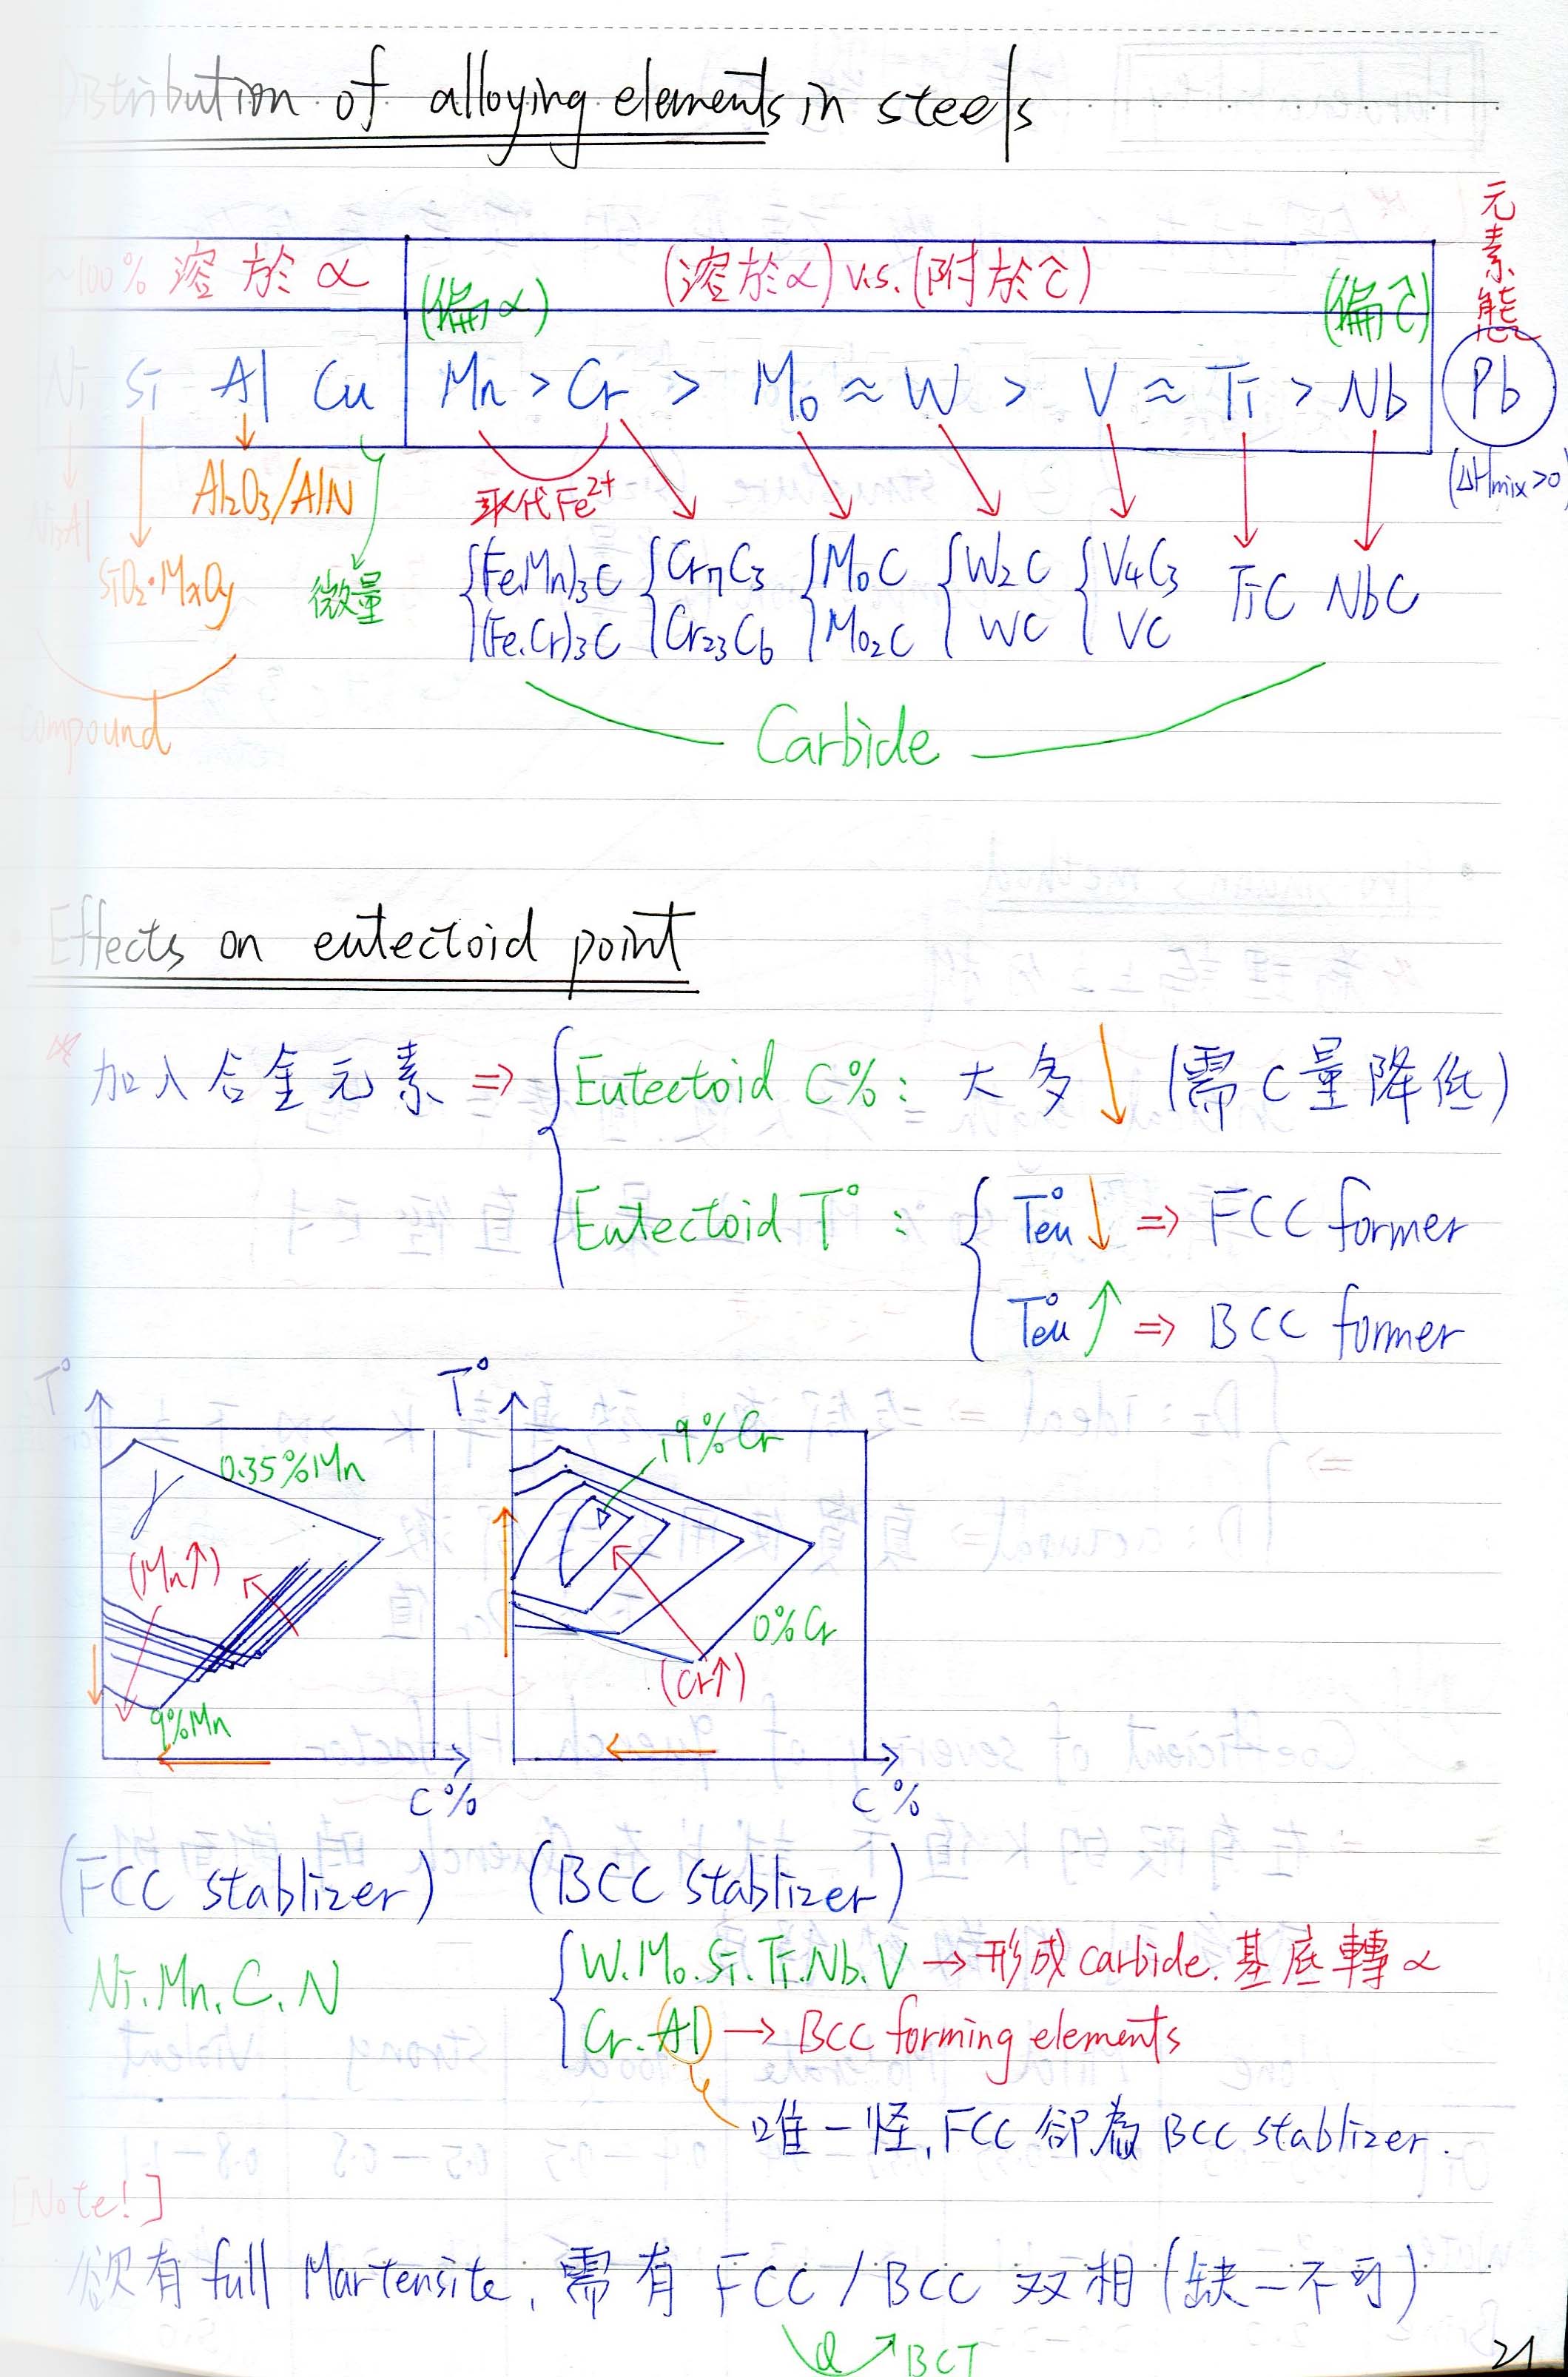 Distribution of alloying elements in steels
元素態
~100% 溶於α
(偏α) (溶於α) v.s. (附於C) (偏C)
Ni Si Al Cu Mn > Cr > Mo ≈ W > V ≈ Ti > Nb Pb
(ΔHmix>0)
Ni3Al
SiO2·MxOy
Al2O3/AlN
微量
取代Fe2+
(Fe.Mn)3C
(Fe.Cr)3C
Cr7C3
Cr23C6
MoC
Mo2C
W2C
WC
V4C3
VC
TiC NbC
Compound
Carbide
Effects on eutectoid point
加入合金元素 ⇒ Eutectoid C%: 大多↓ (需C量降低)
Eutectoid T°: Teu°↓ ⇒ FCC former
Teu°↑ ⇒ BCC former
T°
0.35%Mn
γ
(Mn↑)
9%Mn
C%
T°
19%Cr
0%Cr
(Cr↑)
C%
(FCC stablizer) (BCC stablizer)
Ni.Mn.C.N
W.Mo.Si.Ti.Nb.V → 形成carbide.基底轉α
Cr.Al → BCC forming elements
唯一怪,FCC卻為BCC stablizer.
[Note!]
欲有full Martensite, 需有FCC/BCC 双相(缺一不可)
Q ↗BCT
21